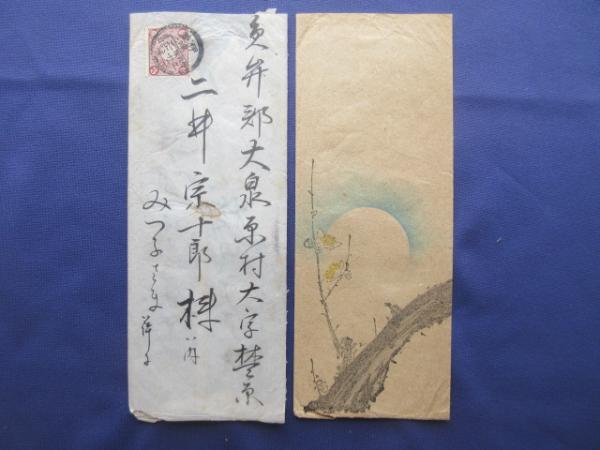 員弁郡大泉原村大字楚原
二井宗十郎様
内
みつ子さま